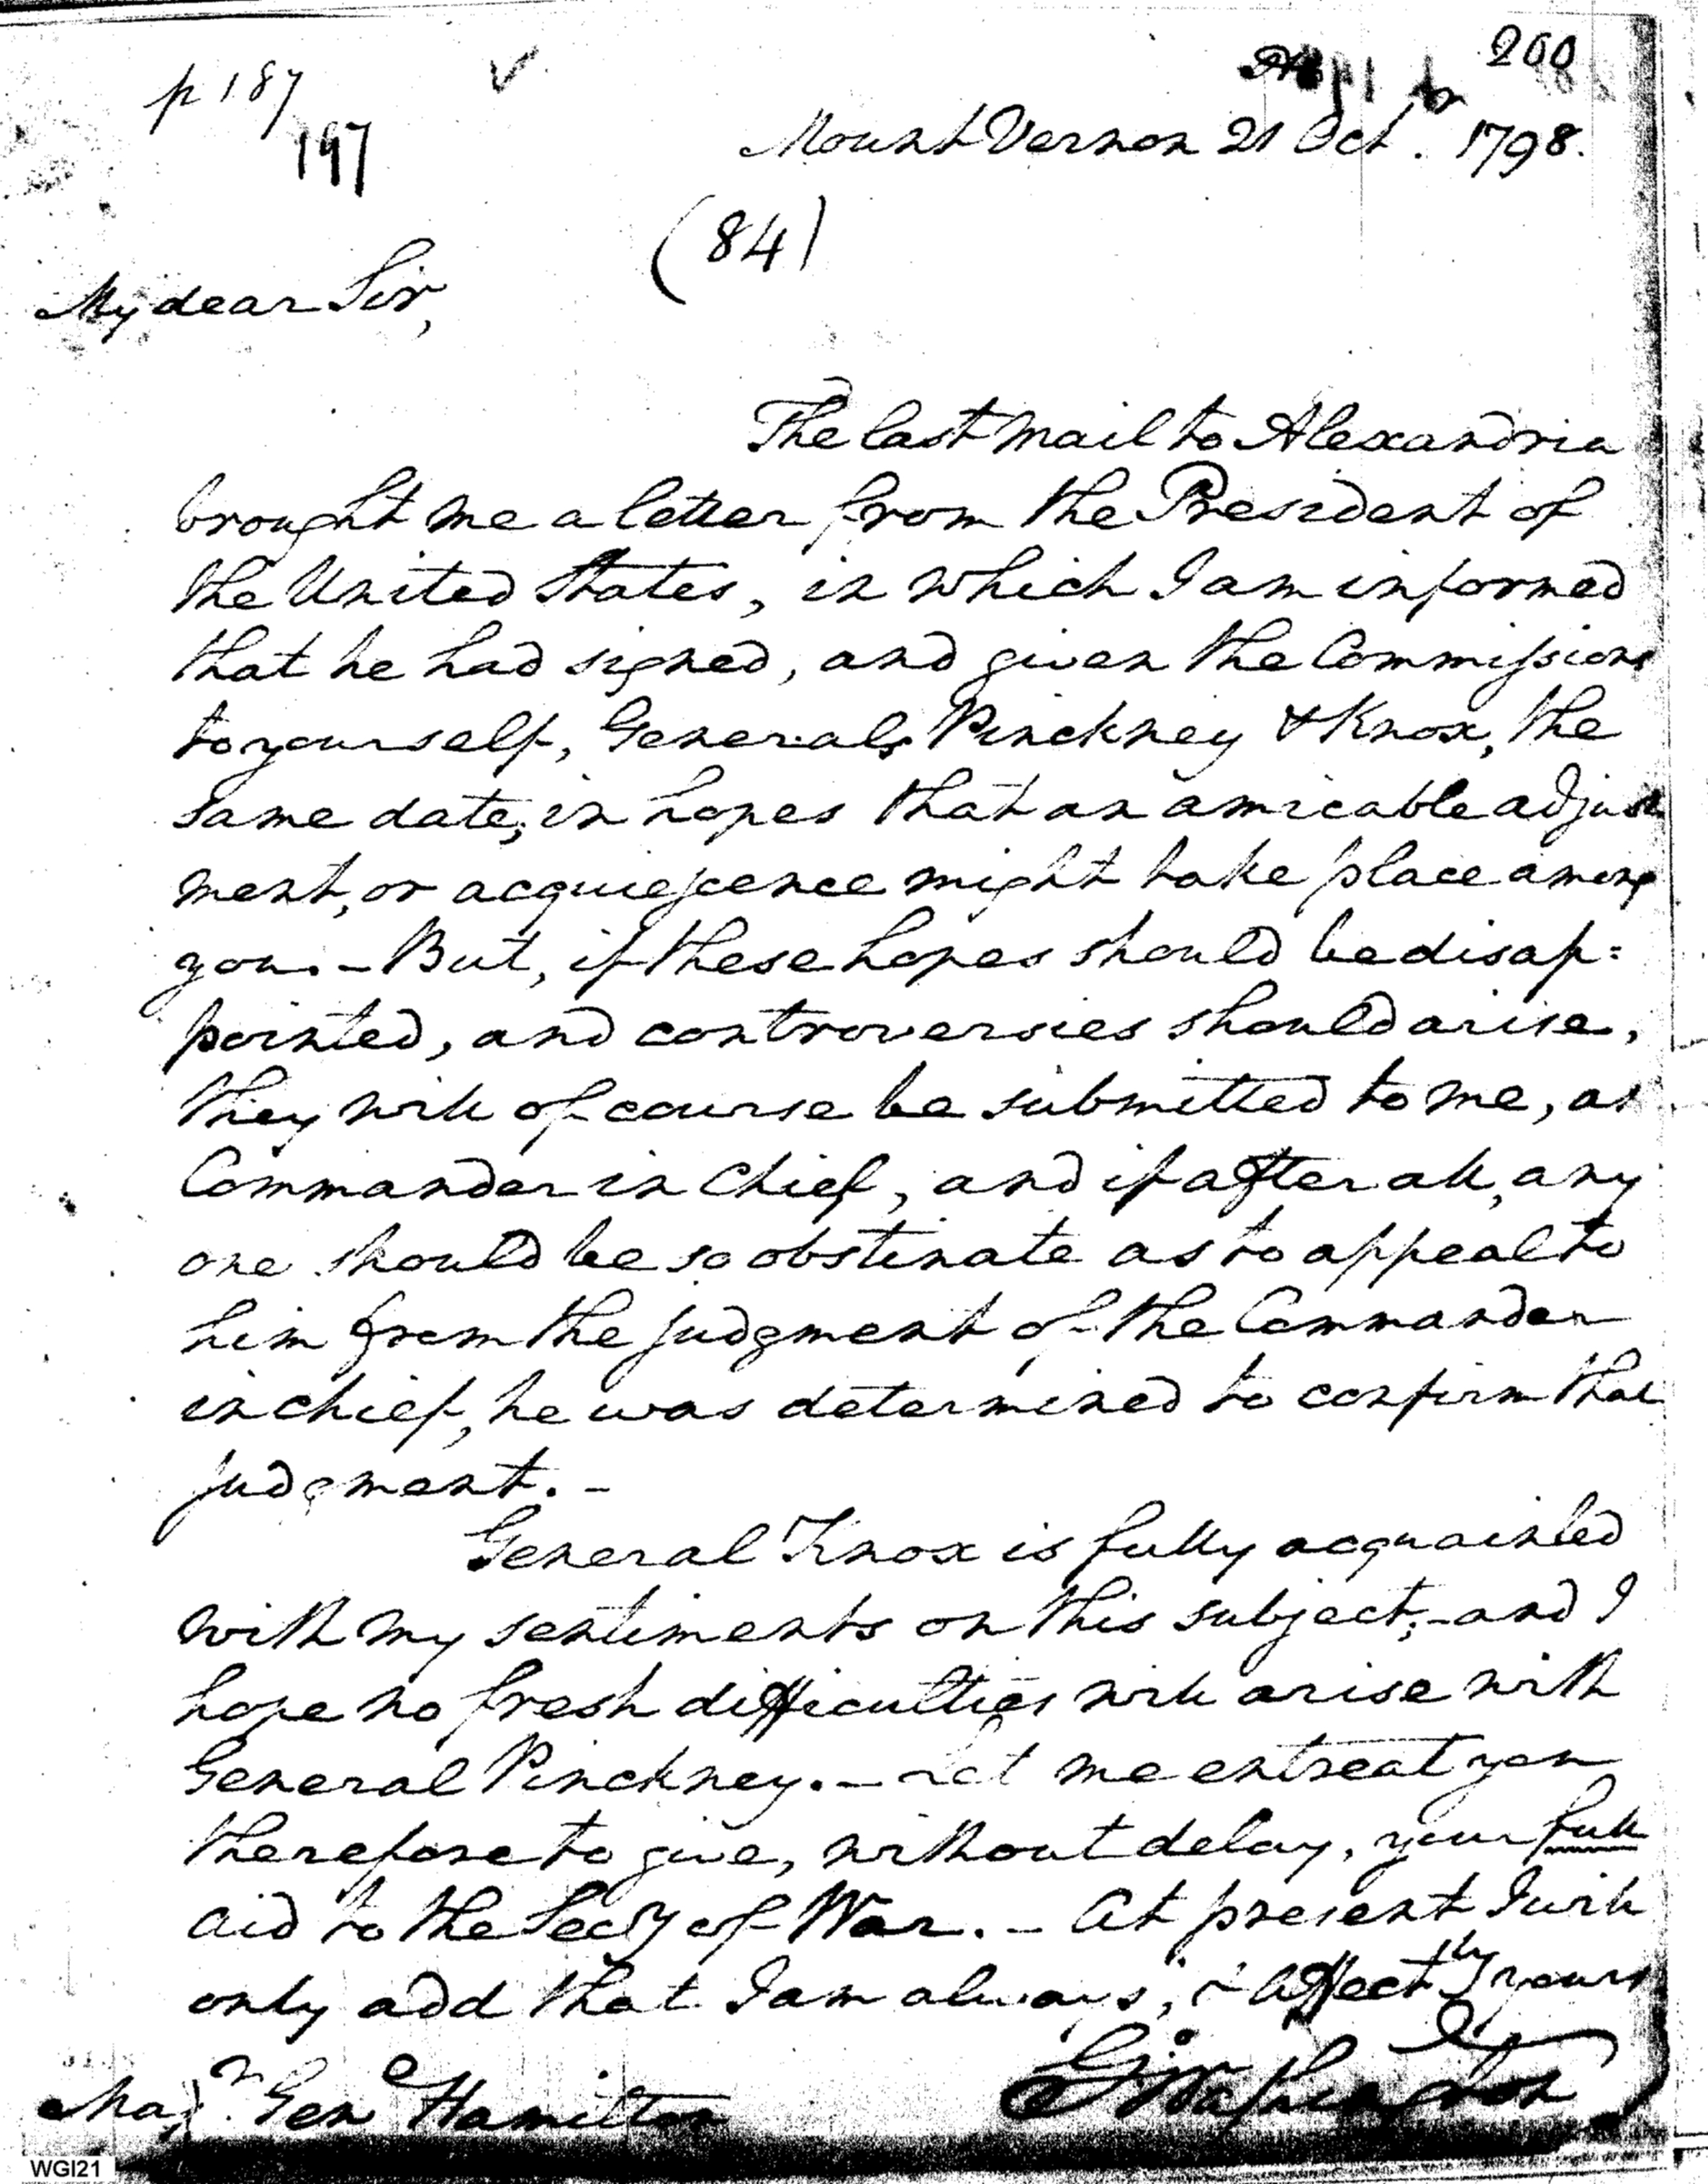 200
p 187
197
Mount Vernon 21 Octr. 1798.
(84)
My dear Sir,
The last mail to Alexandria
brought me a letter from the President of
the United States, in which I am informed
that he had signed, and given the Commissions
to yourself, Generals Pinckney & Knox, the
same date, in hopes that an amicable adjust
ment, or acquiescence might take place among
you. – But, if these hopes should be disap=
pointed, and controversies should arise,
they will of course be submitted to me, as
Commander in Chief, and if after all, any
one should be so obstinate as to appeal to
him from the judgment of the Commander
in chief, he was determined to confirm that
judgment. –
General Knox is fully acquainted
with my sentiments on this subject; – and I
hope no fresh difficulties will arise with
General Pinckney. – Let me entreat you
therefore to give, without delay, your full
aid to the Secy of War. – At present I will
only add that I am always, & Affectly yours
Go: Washington
Majr. Genl Hamilton
WGI21